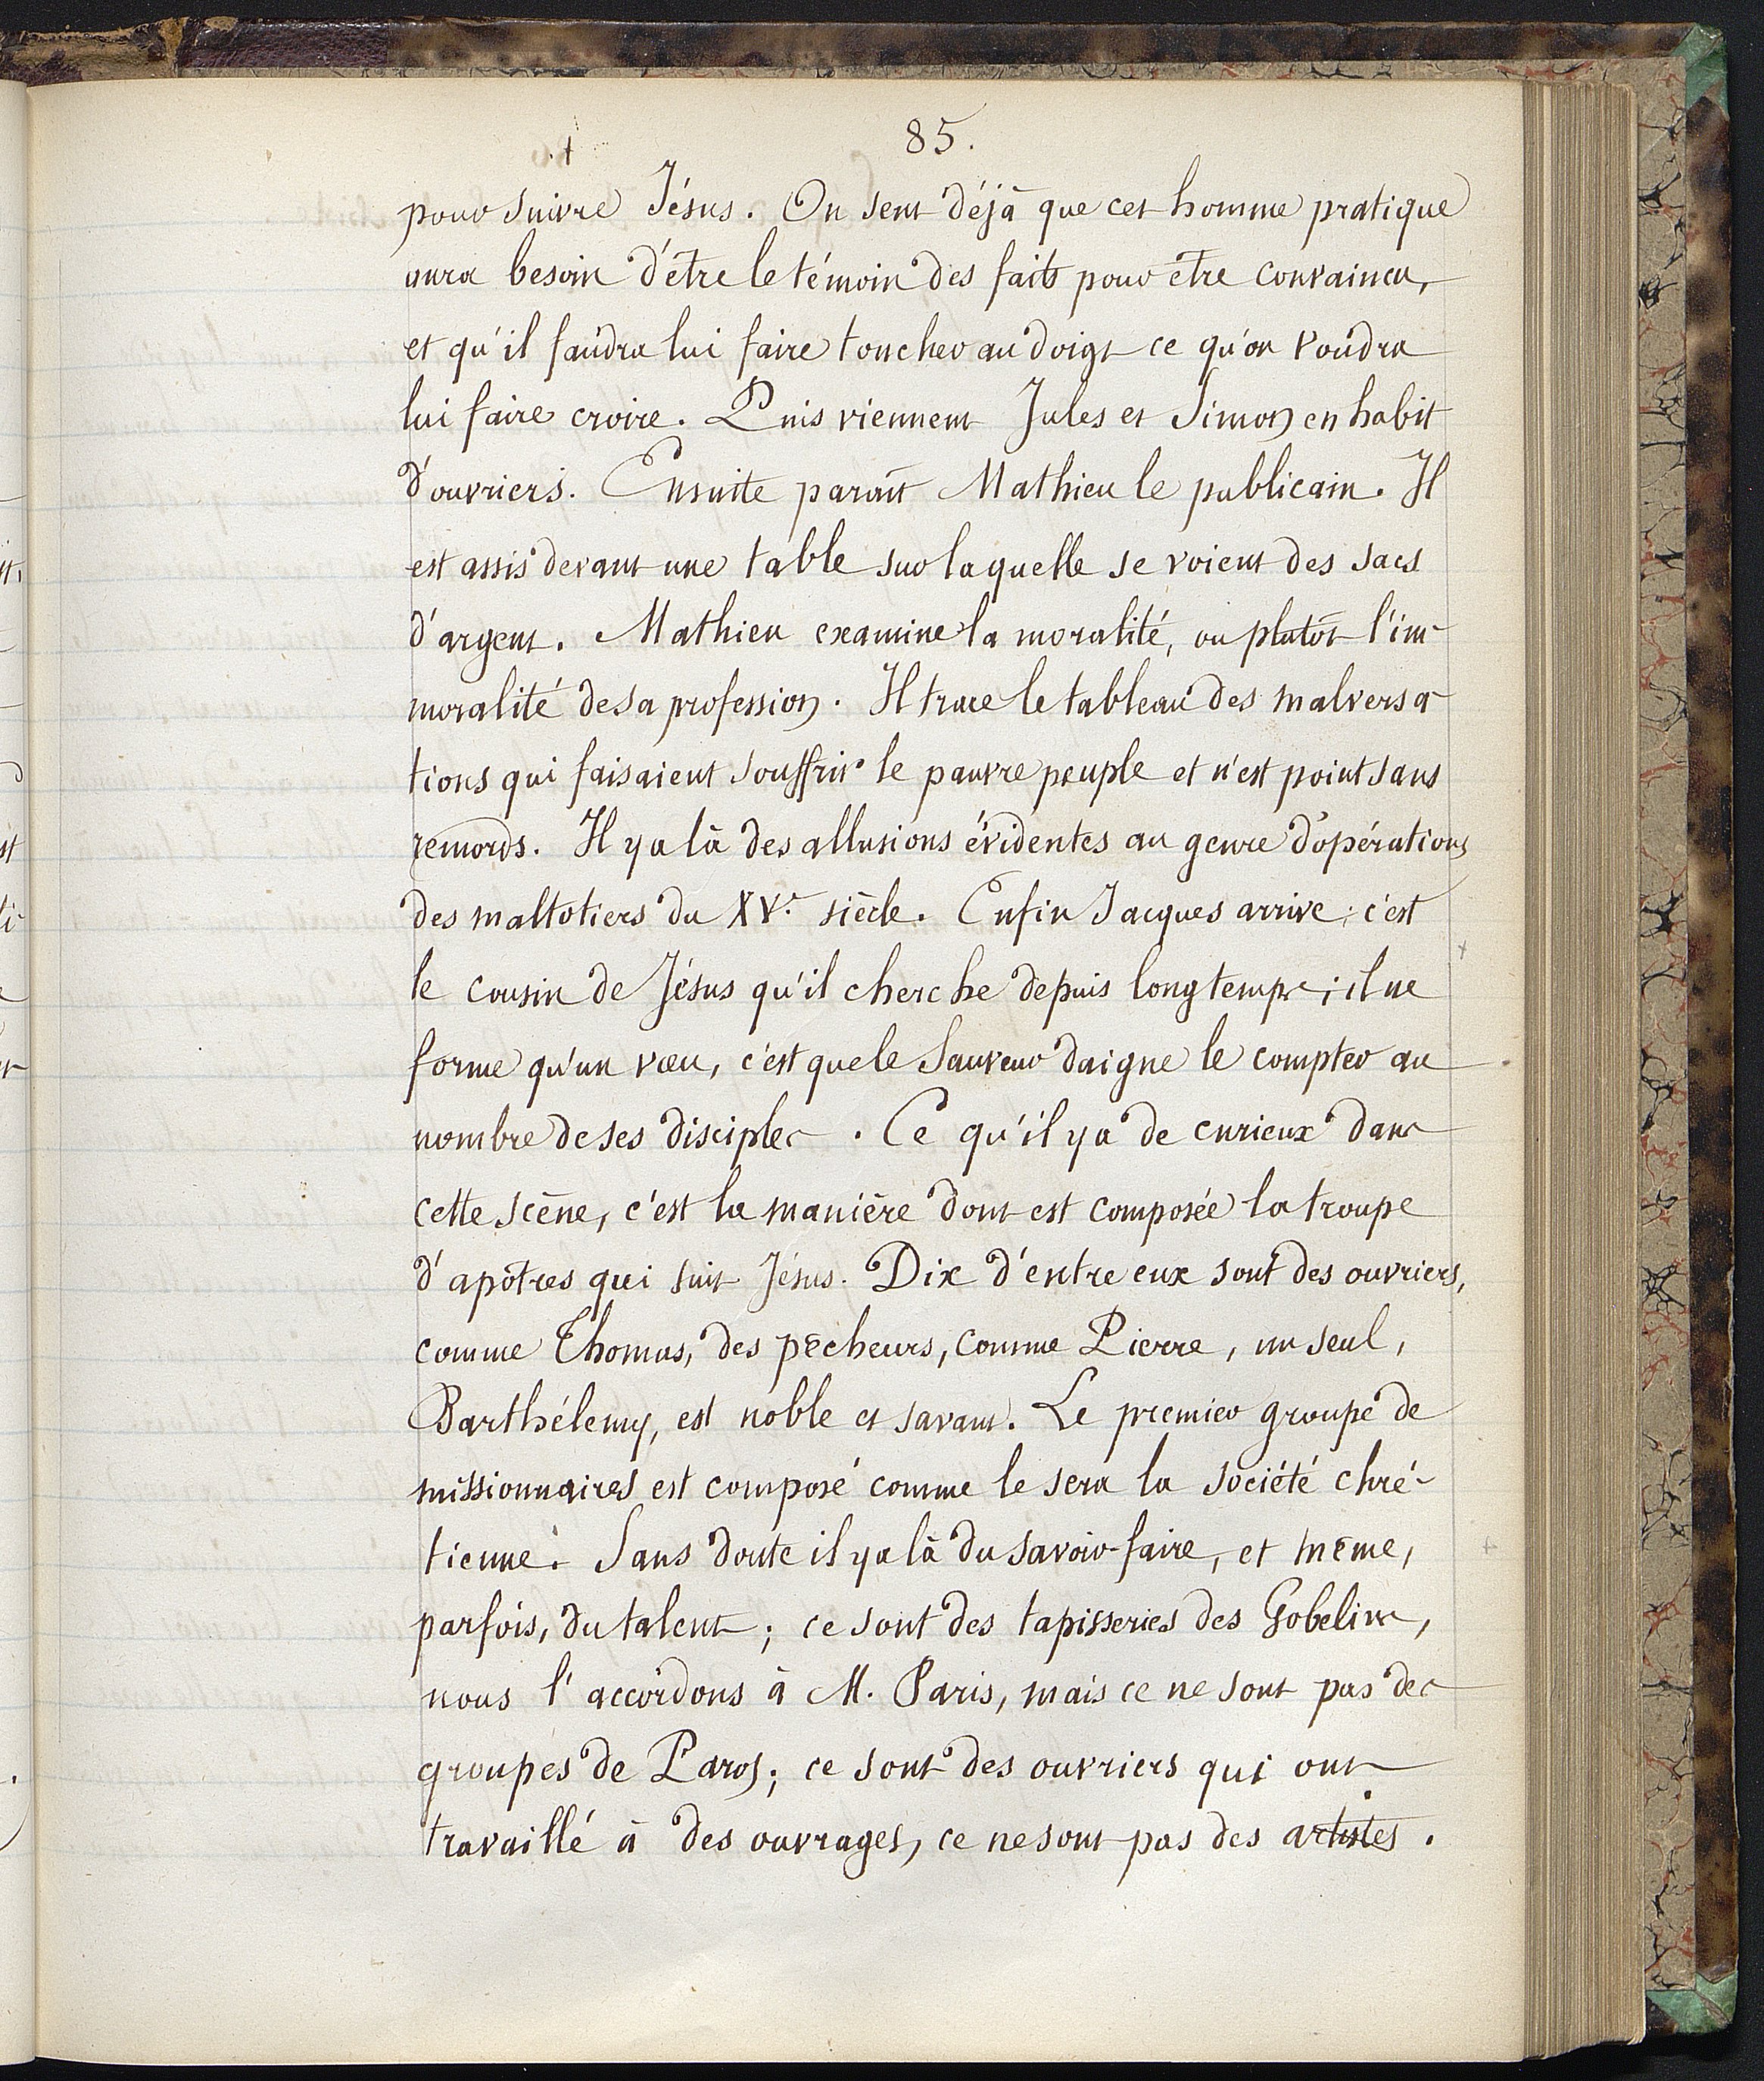 85.
pour suivre Jésus. On sent déjà que cet homme pratique
aura besoin d'être le témoin des faits pour être convaincu,
et qu'il faudra lui faire toucher au doigt ce qu'on voudra
lui faire croire. Puis viennent Jules et Simon en habit
d'ouvriers. Ensuite paraît Mathieu le publicain. Il
est assis devant une table sur laquelle se voient des sacs
d'argent. Mathieu examine la moralité, ou plutôt l'im-
moralité de sa profession. Il trace le tableau des malversa-
tions qui faisaient souffrir le pauvre peuple et n'est point sans
remords. Il y a là des allusions évidentes au genre d'opérations
des maltotiers du XVe. siècle. Enfin Jacques arrive; c'est
le cousin de Jésus qu'il cherche depuis longtemps; il ne
forme qu'un vœu, c'est que le Sauveur daigne le compter au
nombre de ses disciples. Ce qu'il y a de curieux dans
cette scène, c'est la manière dont est composée la troupe
d'apôtres qui suit Jésus. Dix d'entre eux sont des ouvriers,
comme Thomas, des pêcheurs, comme Pierre, un seul,
Barthélemy, est noble et savant. Le premier groupe de
missionnaires est composé comme le sera la société chré-
tienne. Sans doute il y a là du savoir-faire, et même,
parfois, du talent; ce sont des tapisseries des Gobelins,
nous l'accordons à M. Paris, mais ce ne sont pas des
groupes de Paros; ce sont des ouvriers qui ont
travaillé à des ouvrages, ce ne sont pas des artistes.